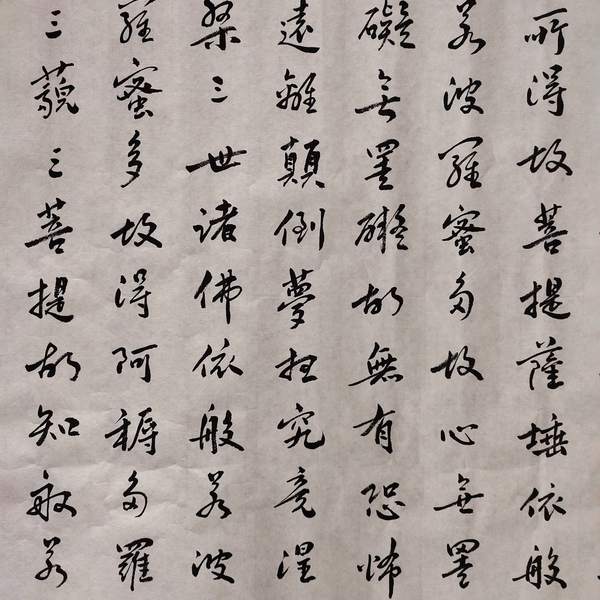 所得故菩提薩埵依般
若波羅蜜多故心無罣
礙無罣礙故無有恐怖
遠離顛倒夢想究竟涅
槃三世諸佛依般若波
羅蜜多故得阿耨多羅
三藐三菩提故知般若